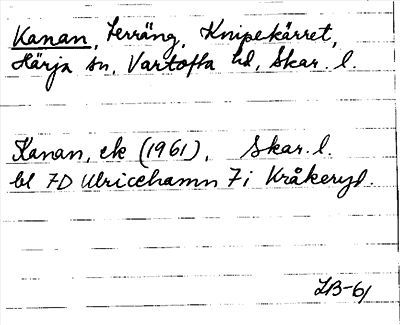 Kanan, Terräng, Knipekärret,
Härja sn, Vartofta hd, Skar. l.
Kanan, ek (1961), Skar. l.
bl 7D Ulricehamn 7i Kråkeryd.
LB-61